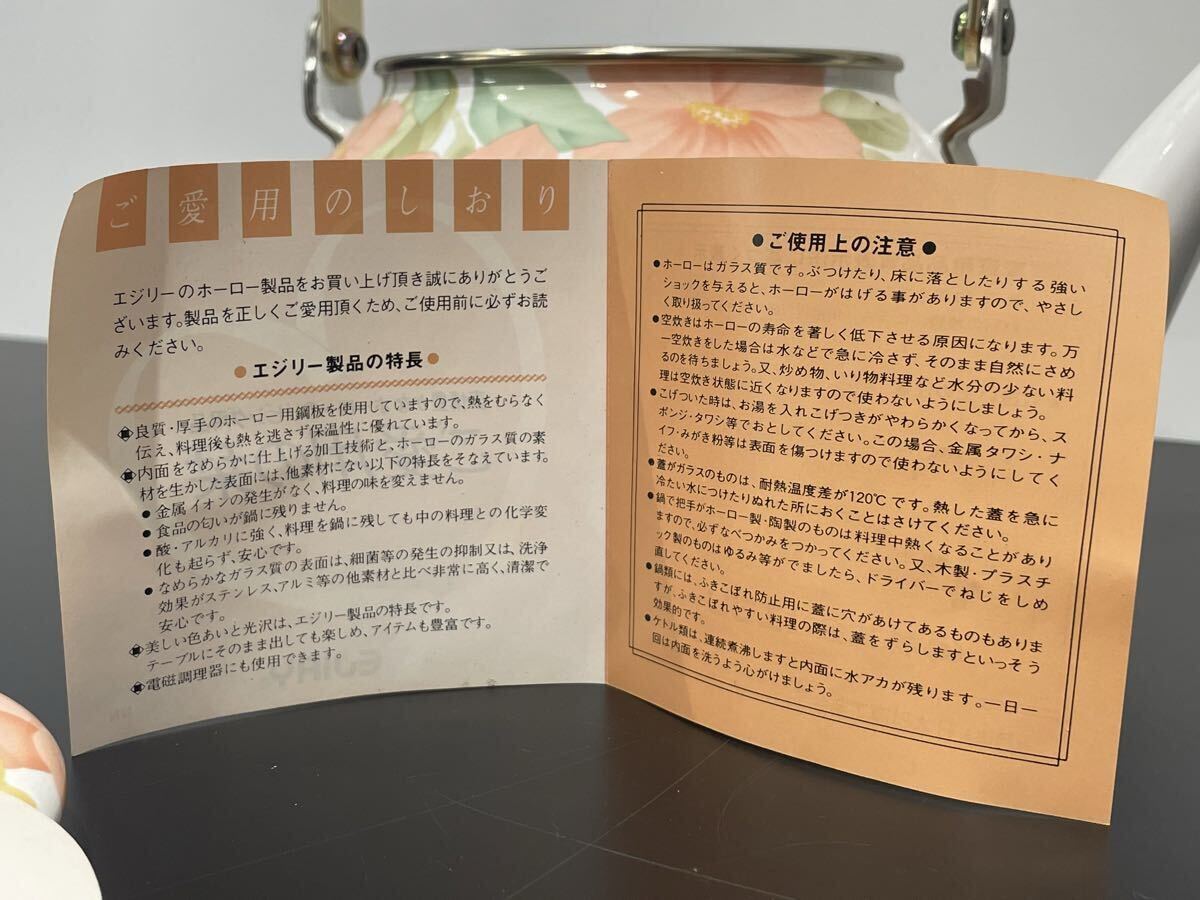 ご愛用のしおり
エジリーのホーロー製品をお買い上げ頂き誠にありがとうご
ざいます。製品を正しくご愛用頂くため、ご使用前に必ずお読
みください。
●エジリー製品の特長●
良質・厚手のホーロー用鋼板を使用していますので、熱をむらなく
伝え、料理後も熱を逃さず保温性に優れています。
内面をなめらかに仕上げる加工技術と、ホーローのガラス質の素
材を生かした表面には、他素材にない以下の特長をそなえています。
●金属イオンの発生がなく、料理の味を変えません。
●食品の匂いが鍋に残りません。
●酸・アルカリに強く、料理を鍋に残しても中の料理との化学変
化も起らず、安心です。
●なめらかなガラス質の表面は、細菌等の発生の抑制又は、洗浄
効果がステンレス、アルミ等の他素材と比べ非常に高く、清潔で
安心です。
美しい色あいと光沢は、エジリー製品の特長です。
テーブルにそのまま出しても楽しめ、アイテムも豊富です。
電磁調理器にも使用できます。
●ご使用上の注意●
●ホーローはガラス質です。ぶつけたり、床に落としたりする強い
ショックを与えると、ホーローがはげる事がありますので、やさし
く取り扱ってください。
●空炊きはホーローの寿命を著しく低下させる原因になります。万
一空炊きをした場合は水などで急に冷さず、そのまま自然にさめ
るのを待ちましょう。又、炒め物、いり物料理など水分の少ない料
理は空炊き状態に近くなりますので使わないようにしましょう。
●こげついた時は、お湯を入れこげつきがやわらかくなってから、ス
ポンジ・タワシ等でおとしてください。この場合、金属タワシ・ナ
イフ・みがき粉等は表面を傷つけますので使わないようにしてく
ださい。
●蓋がガラスのものは、耐熱温度差が120℃です。熱した蓋を急に
冷たい水につけたりぬれた所におくことはさけてください。
●鍋で把手がホーロー製・陶製のものは料理中熱くなることがあり
ますので、必ずなべつかみをつかってください。又、木製・プラスチ
ック製のものはゆるみ等がでましたら、ドライバーでねじをしめ
直してください。
●鍋類には、ふきこぼれ防止用に蓋に穴があけてあるものもありま
すが、ふきこぼれやすい料理の際は、蓋をずらしますといっそう
効果的です。
●ケトル類は、連続煮沸しますと内面に水アカが残ります。一日一
回は内面を洗うよう心がけましょう。